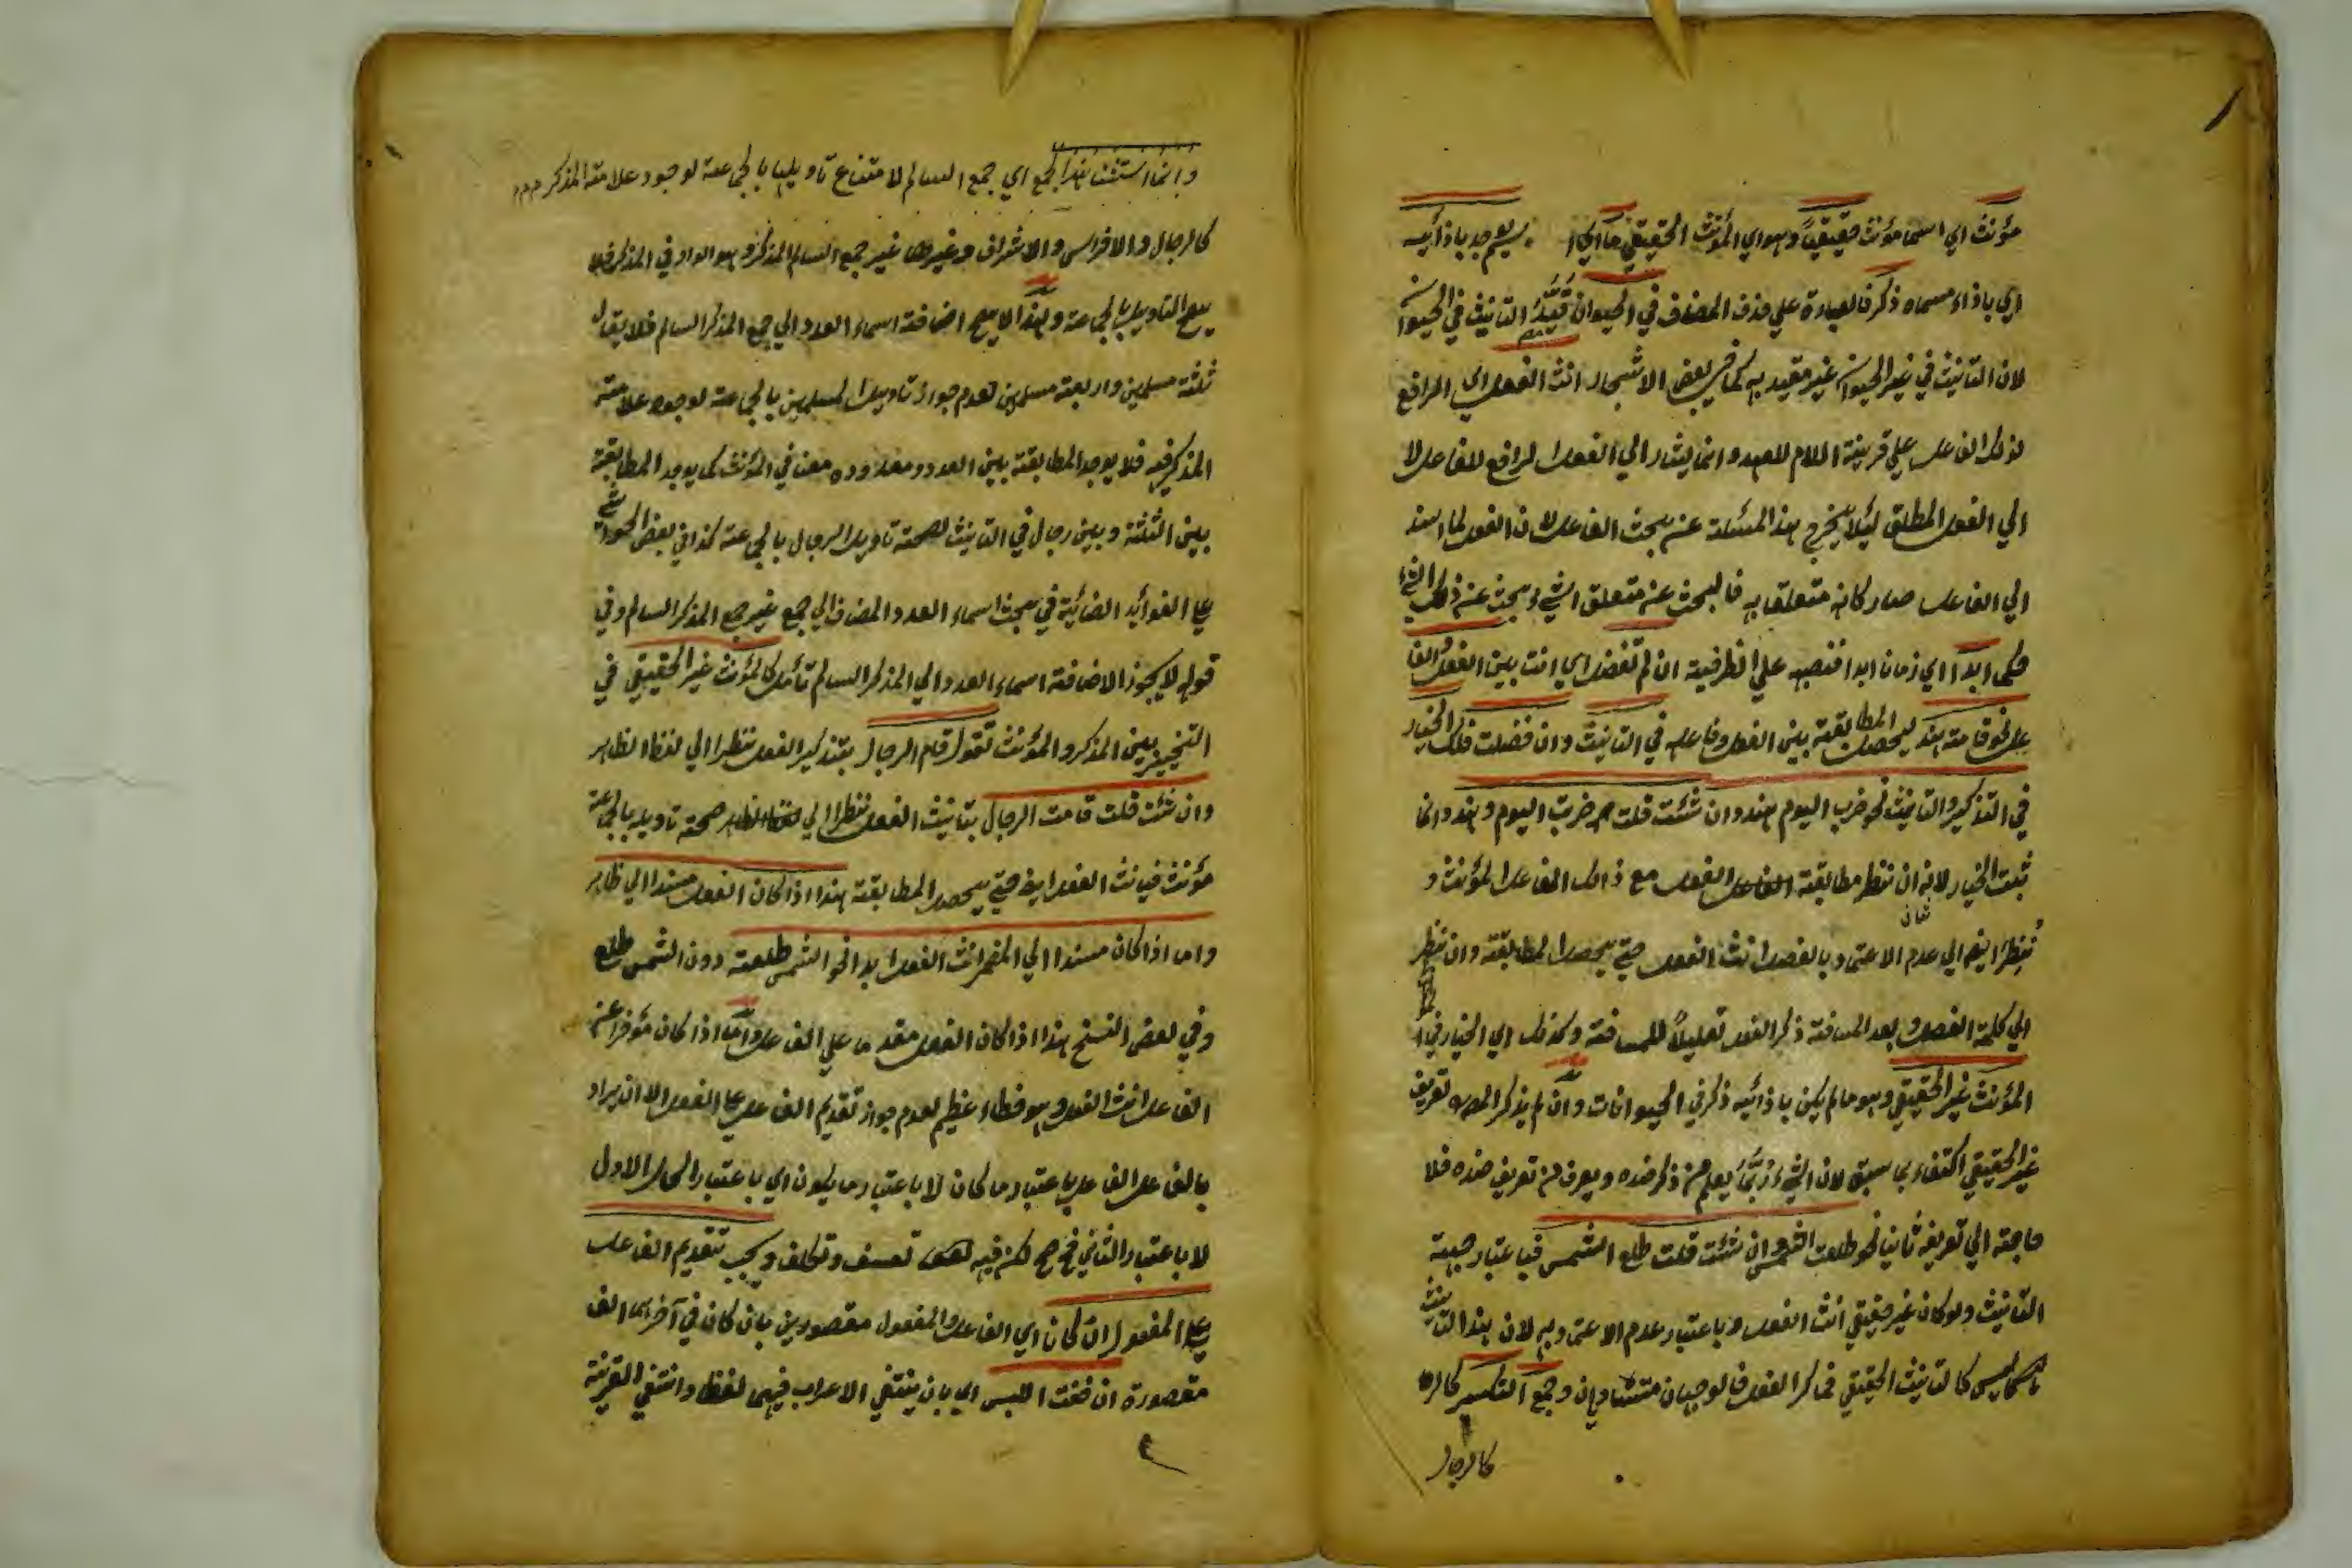 مؤنث اي اسما مؤنث حقيقيا وهو اي المؤنث الحقيقي ما اي اسم يوجد باذائه
اي باذاء مسماه ذكر فالعبارة علي حذف المضاف في الحيوان قيد التانيث في الحيوان
لان التانيث في غير الحيوان غير مقيد به كما في بعض الاشجار انث الفعل اي الرافع
لذلك الفاعل علي قرينة اللام للعهد وانما يشار الي الفعل الرافع للفاعل لا
الي الفعل المطلق ليلا يخرج هذ المسئلة عن بحث الفاعل لان الفعل لما اسند
الي الفاعل صار كانه متعلقا به فالبحث عن متعلق الشيء بحث عن ذلك الشيء
حكما ابدا اي زمانا ابدا فنصبه علي الظرفية ان لم تفصل اي انت بين الفعل والفا
عل نحو قامت هند ليحصل المطابقة بين الفعل وفاعله في التانيث وان فصلت فلك الخيار
في التذكير والتانيث نحو ضرب اليوم هند وان شئت قلت ضربت اليوم هند وانما
ثبت الخيار لانه ان نظر مطابقة الفعل مع ذلك الفاعل المؤنث و
نظر ايضا الي عدم الاعتماد بالفصل انث الفعل حتي يحصل المطابقة وان نظر
الي كلمة الفصل وبعد المسافة ذكر الفعل تعليلا للمسافة وكذلك اي الخيار في
المؤنث غير الحقيقي وهو ما لم يكن باذائه ذكر في الحيوانات وان لم يذكر المص تعريف
غير الحقيقي اكتفاء بما سبق لان الشيء ربما يعلم من ذكر ضده ويعرف من تعريف ضده فلا
حاجة الي تعريفه ثانيا نحو طلعت الشمس وان شئت قلت طلع الشمس فباعتبار جهة
التانيث ولو كان غير حقيقي انث الفعل وباعتبار عدم الاعتماد به لان هذا التانيث
ليس كالتانيث الحقيقي فذكر الفعل فالوجهان متساويان وجمع التكسير كالرجا
كالرجال
وانما استثنا هذا الجمع اي جمع السالم لامتناع تاويلها بالجماعة لوجود علامة المذكر
كالرجال والافراس والاشراف وغيرها غير جمع السالم المذكر وهو الواو في المذكر فلا
يصح التاويل بالجماعة ولهذا لا يصح اضافة اسماء العدد الي جمع المذكر السالم فلا يقال
ثلثة مسلمين واربعة مسلمين لعدم جواز تاويل المسلمين بالجماعة لوجود علامة
المذكر فيه فلا يوجد المطابقة بين العدد ومعدوده معنا في المؤنث كما يوجد المطابقة
بين الثلثة وبين رجال في التانيث لصحة تاويل الرجال بالجماعة كذا في بعض الحواشي
علي الفوائد الضيائية في بحث اسماء العدد المضاف الي جمع غير جمع المذكر السالم وفي
قوله لا يجوز الاضافة اسماء العدد الي المذكر السالم تأمل كالمؤنث غير الحقيقي في
التخيير بين المذكر والمؤنث تقول قام الرجال بتذكير الفعل نظرا الي لفظ الظاهر
وان شئت قلت قامت الرجال بتانيث الفعل نظرا الي صحة تاويله بالجماعة
مؤنث فيانث الفعل ايضا حتي يحصل المطابقة هذا اذا كان الفعل مسندا الي ظاهر
واما اذا كان مسندا الي المضمر انث الفعل ابدا نحو الشمس طلعت دون الشمس طلع
وفي بعض النسخ هذا اذا كان الفعل مقدما علي الفاعل واما اذا كان مؤخرا عن
الفاعل انث الفعل وهو خطاء عظيم لعدم جواز تقديم الفاعل علي الفعل الا ان يراد
بالفاعل الفاعل باعتبار ما كان لا باعتبار ما يكون اي باعتبار الحال الاول
لا باعتبار الثاني فح صح لكن فيه تعسف وتكلف ويجب تقديم الفاعل
علي المفعول ان كان اي الفاعل والمفعول مقصورين بان كان في آخرهما الف
مقصورة ان خفت اللبس اي بان ينتفي الاعراب فيهما لفظا وانتفي القرينة